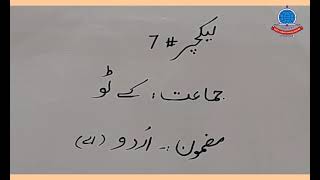 لیکچر # 7
جماعت: کے ٹو
مضمون:۔ اُردو (اے)